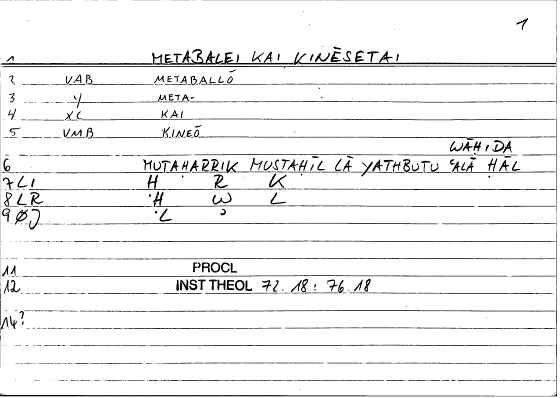 1
1 METABALEI KAI KINĒSETAI
2 VAB METABALLŌ
3 Y META-
4 XC KAI
5 VMB KINEŌ
WĀḤIDA
6 MUTAHARRIK MUSTAḤĪL LĀ YATHBUTU ʿALĀ ḤĀL
7 LI Ḥ R K
8 LR Ḥ W L
9 ØJ L
11 PROCL
12 INST THEOL 72.18: 76.18
14?